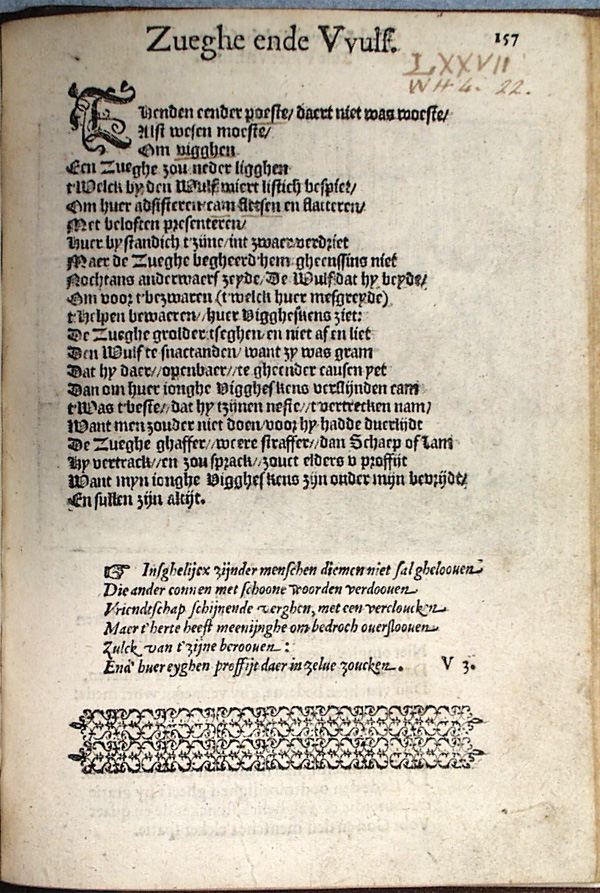 Zueghe ende Vvulf.
157
LXXVII
WH 4. 22.
THenden eender poeste/ daert niet was woeste/
Alst wesen moeste/
Om vigghen
Een Zueghe zou neder ligghen
t'Welck by den Wulf wiert listich bespiet/
Om huer adsisteren cam fletsen en flatteren/
Met beloften presenteren/
Huer bystandich t'zijne/ int zwaer verdriet
Maer de Zueghe begheerd'hem gheenssins niet
Nochtans anderwaerf zeyde/ De Wulf dat hy beyde/
Om voor t'bezwaren (t'welck huer mesgreyde)
t'Helpen bewaeren/ huer Viggheskens ziet:
De Zueghe grolder tseghen/ en niet af en liet
Den Wulf te snactanden/ want zy was gram
Dat hy daer// openbaer// te gheender causen yet
Dan om huer ionghe Viggheskens verslijnden cam
t'Was t'beste/ dat hy tzijnen neste// t'vertrecken nam/
Want men zouder niet doen/ voor hy hadde duerlijdt
De Zueghe ghaffer// weere straffer// dan Schaep of Lam
Hy vertrack// en zou sprack// zouct elders v proffijt
Want myn ionghe Viggheskens zijn onder mijn bevrijdt/
En sullen zijn altijt.
☞ Insghelijcx zijnder menschen diemen niet sal ghelooven
Die ander connen met schoone woorden verdooven
Vriendtschap schijnende verghen, met een vercloucken
Maer t'herte heeft meenijnghe om bedroch overslooven
Zulck van t'zijne berooven:
End' huer eyghen proffijt daer in zelve zoucken.
V 3.